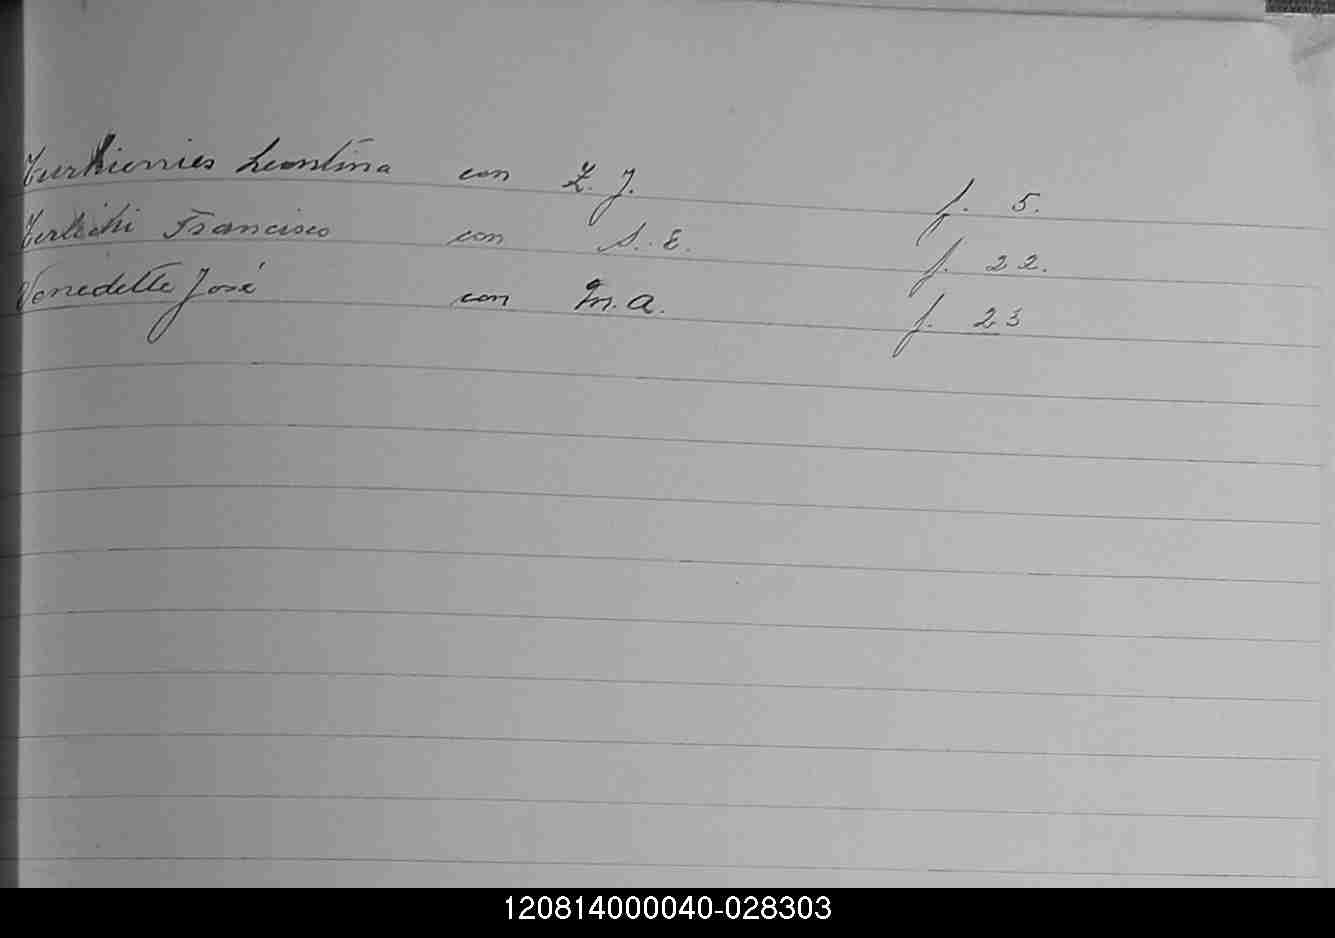 Leontina con Z. J. f. 5.
Francisco con S. E. f. 22.
Venedette José con M. A. f. 23
120814000040-028303